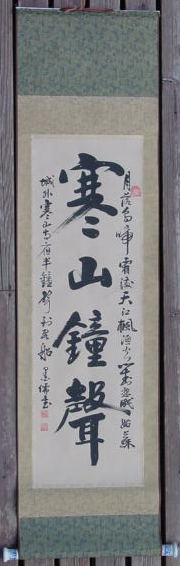 月落烏啼霜滿天江楓漁火對愁眠姑蘇
寒山鐘聲
城外寒山寺夜半鐘聲到客船